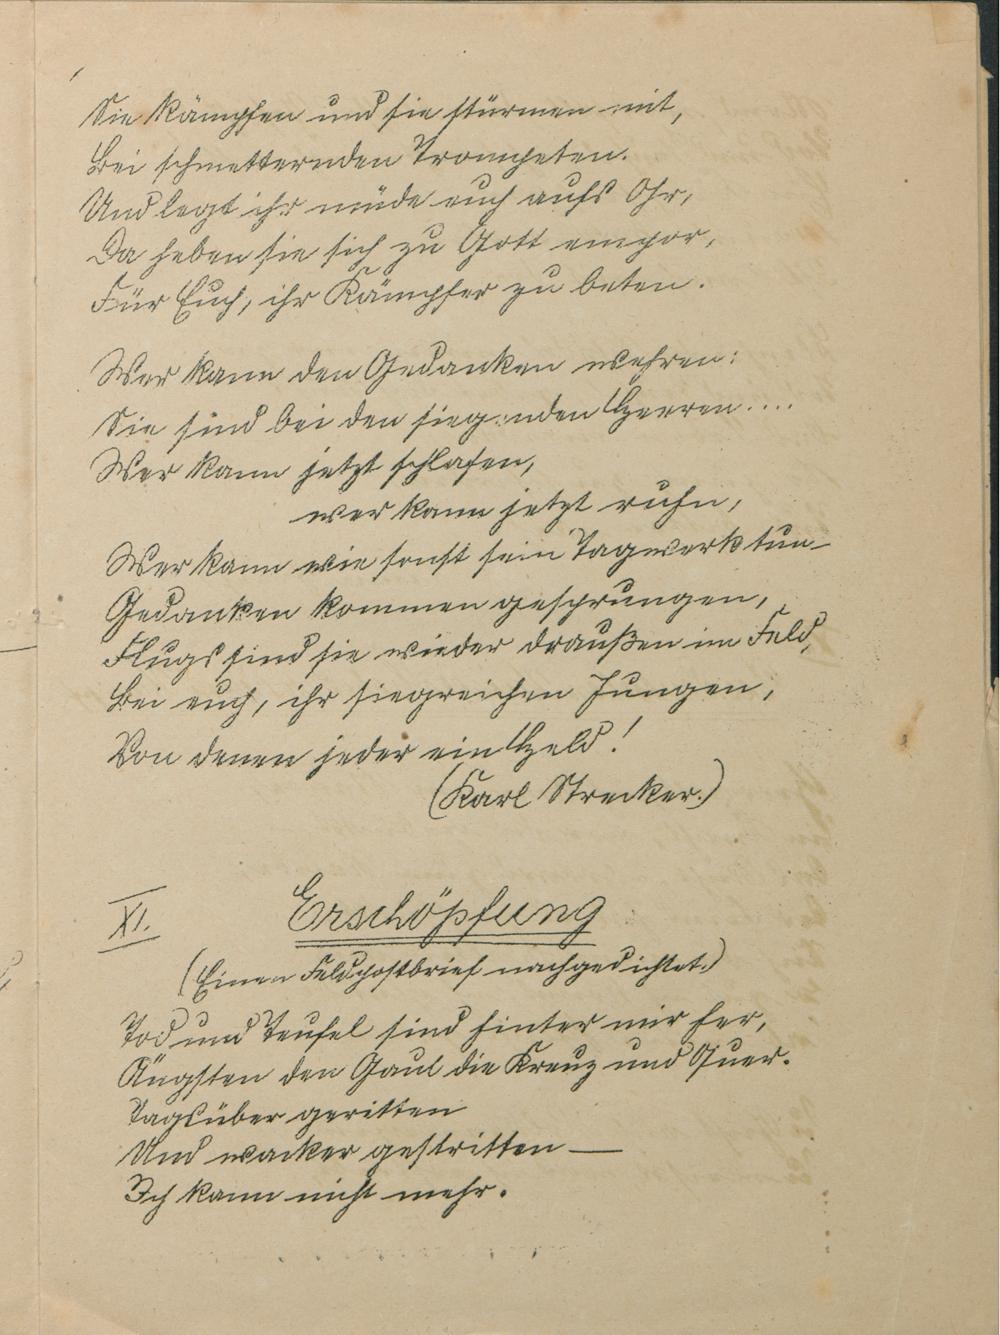 Sie kämpfen und sie stürmen mit,
Bei schmetternden Trompeten.
Und legt ihr müde euch aufs Ohr,
Da heben sie sich zu Gott empor,
Für Euch, ihr Kämpfer zu beten.
Wer kann den Gedanken wehren:
Sie sind bei den siegenden Heeren....
Wer kann jetzt schlafen,
wer kann jetzt ruhn,
Wer kann wie sonst sein Tagwerk tun–
Gedanken kommen gesprungen,
Flugs sind sie wieder draußen im Feld,
Bei euch, ihr siegreichen Jungen,
Von denen jeder ein Held!
(Karl Strecker.)
XI. Erschöpfung
(Einen Feldpostbrief nachgedichtet.)
Tod und Teufel sind hinter mir her,
Ängsten den Gaul die Kreuz und Quer.
Tagsüber geritten
Und wacker gestritten —
Ich kann nicht mehr.